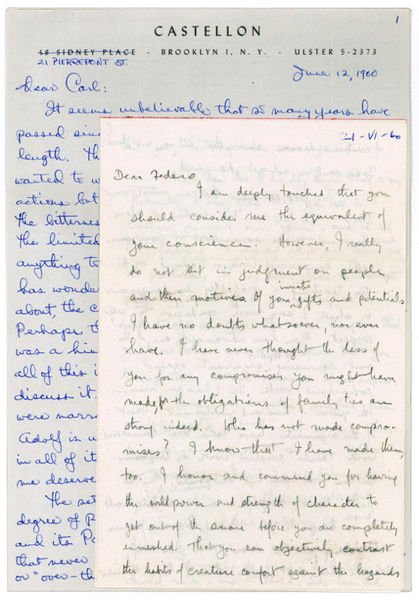 1
CASTELLON
48 SIDNEY PLACE - BROOKLYN 1, N. Y. - ULSTER 5-2373
21 PIERREPONT ST.
June 12, 1960
Dear Carl:
It seems unbelievable that so many years have
passed sinc
length. Th
wanted to w
actions but
the bitternes
the limited
anything to
has wonde
about, the c
Perhaps t
was a hi
all of this i
discuss it.
were narr
Adolf is u
in all of it
me deserve
The set
degree of P
and its Pa
that never
or "over-th
21-VI-60
Dear Federo,
I am deeply touched that you
should consider me the equivalent of
your conscience. However, I really
do not sit in judgment on people
and their motives. Of your innate gifts and potentials
I have no doubts whatsoever, nor ever
have. I have never thought the less of
you for any compromises you might have
made, for the obligations of family ties are
strong indeed. Who has not made compro-
mises? I know that I have made them
too. I honor and commend you for having
the will power and strength of character to
get out of the snare before you are completely
enmeshed. That you can objectively contrast
the habits of creature comfort against the hazards